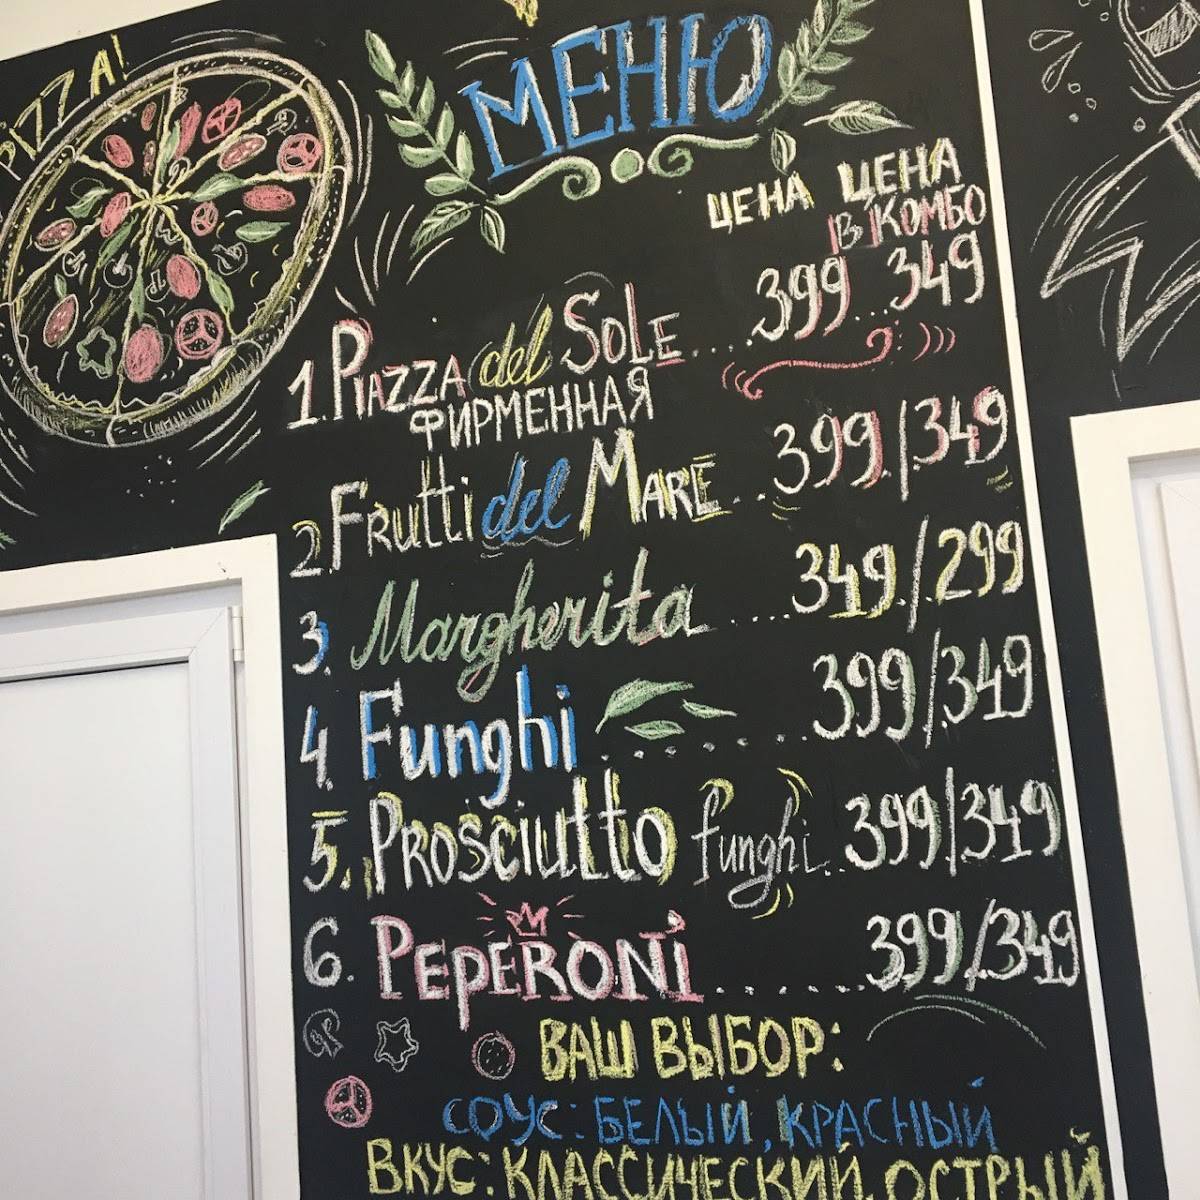 PIZZA!
МЕНЮ
ЦЕНА ЦЕНА
В КОМБО
1. PIAZZA del SOLE....399...349
ФИРМЕННАЯ
2. FRUTTI del MARE...399/349
3. Margherita....349/299
4. Funghi.......399/349
5. PROSCIUTTO funghi..399/349
6. PEPERONI.......399/349
ВАШ ВЫБОР:
СОУС: БЕЛЫЙ, КРАСНЫЙ
ВКУС: КЛАССИЧЕСКИЙ, ОСТРЫЙ